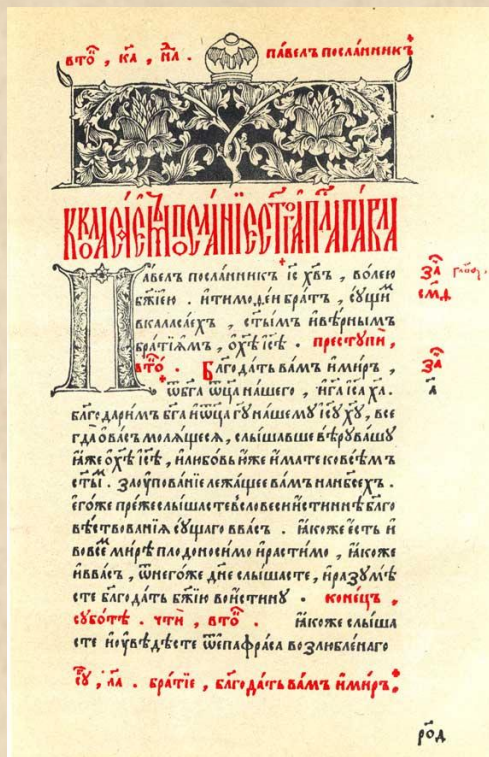 вто҇ , к҃а , нл҇ . па́велъ посла́нникъ
К коласаемъ посланїе ст҃го ап҃ла павла
Па́велъ посла́нникъ і҃с хв҃ъ , во́лею
бж҃їею . и҆тимоѳе́и бра́тъ , су́щи҇
вкаласа́ехъ , ст҃ы́мъ и҆вѣ́рнымъ
бра́тїямъ , ѡ҆хе҃ і҆се҃ . преступѝ ,
за҇
вто҇ . Бл҃года́ть ва́мъ и҆ми́ръ ,
за҇
ѿ бг҃а ѻ҆ц҃а на́шего , и҆гд҃а і҆с҃а х҃а .
а҃
бл҃годари́мъ бг҃а и҆ѻ҆ц҃а гд҃у на́шему і҆с҃у х҃у , все
гда̀ ѡ҆ва́съ моля́щеся , слы́шавше вѣ́ру ва́шу
ꙗ҆́же ѡ҆хе҃ і҆се҃ , и҆любо́вь ю҆́же и҆́мате ковсѣ́мъ
ст҃ы҇ . зау҆пова́нїе лежа́щее ва́мъ нанб҃се́хъ .
е҆го́же пре́же слы́шасте въсловесѝ и҆́стинне бл҃го
вѣствова́нїя су́щаго ввасъ . ꙗ҆́коже е҆́сть и҆
вовсе҇ ми́рѣ плодоноси́мо и҆расти́мо , ꙗ҆́коже
и҆ввасъ , ѿнего́же днѐ слы́шасте , и҆разумѣ́
сте бл҃года́ть бж҃їю вои҆́стину . коне́цъ ,
субо́тѣ . чтѝ , вто҇ . ꙗ҆́коже слы́ша
сте и҆ꙋ҆вѣ́дѣсте ѿ е҆пафра́са возлю́бленаго
л҃а . бра́тїе , бл҃года́ть ва́мъ и҆ми́ръ .
ро҇д